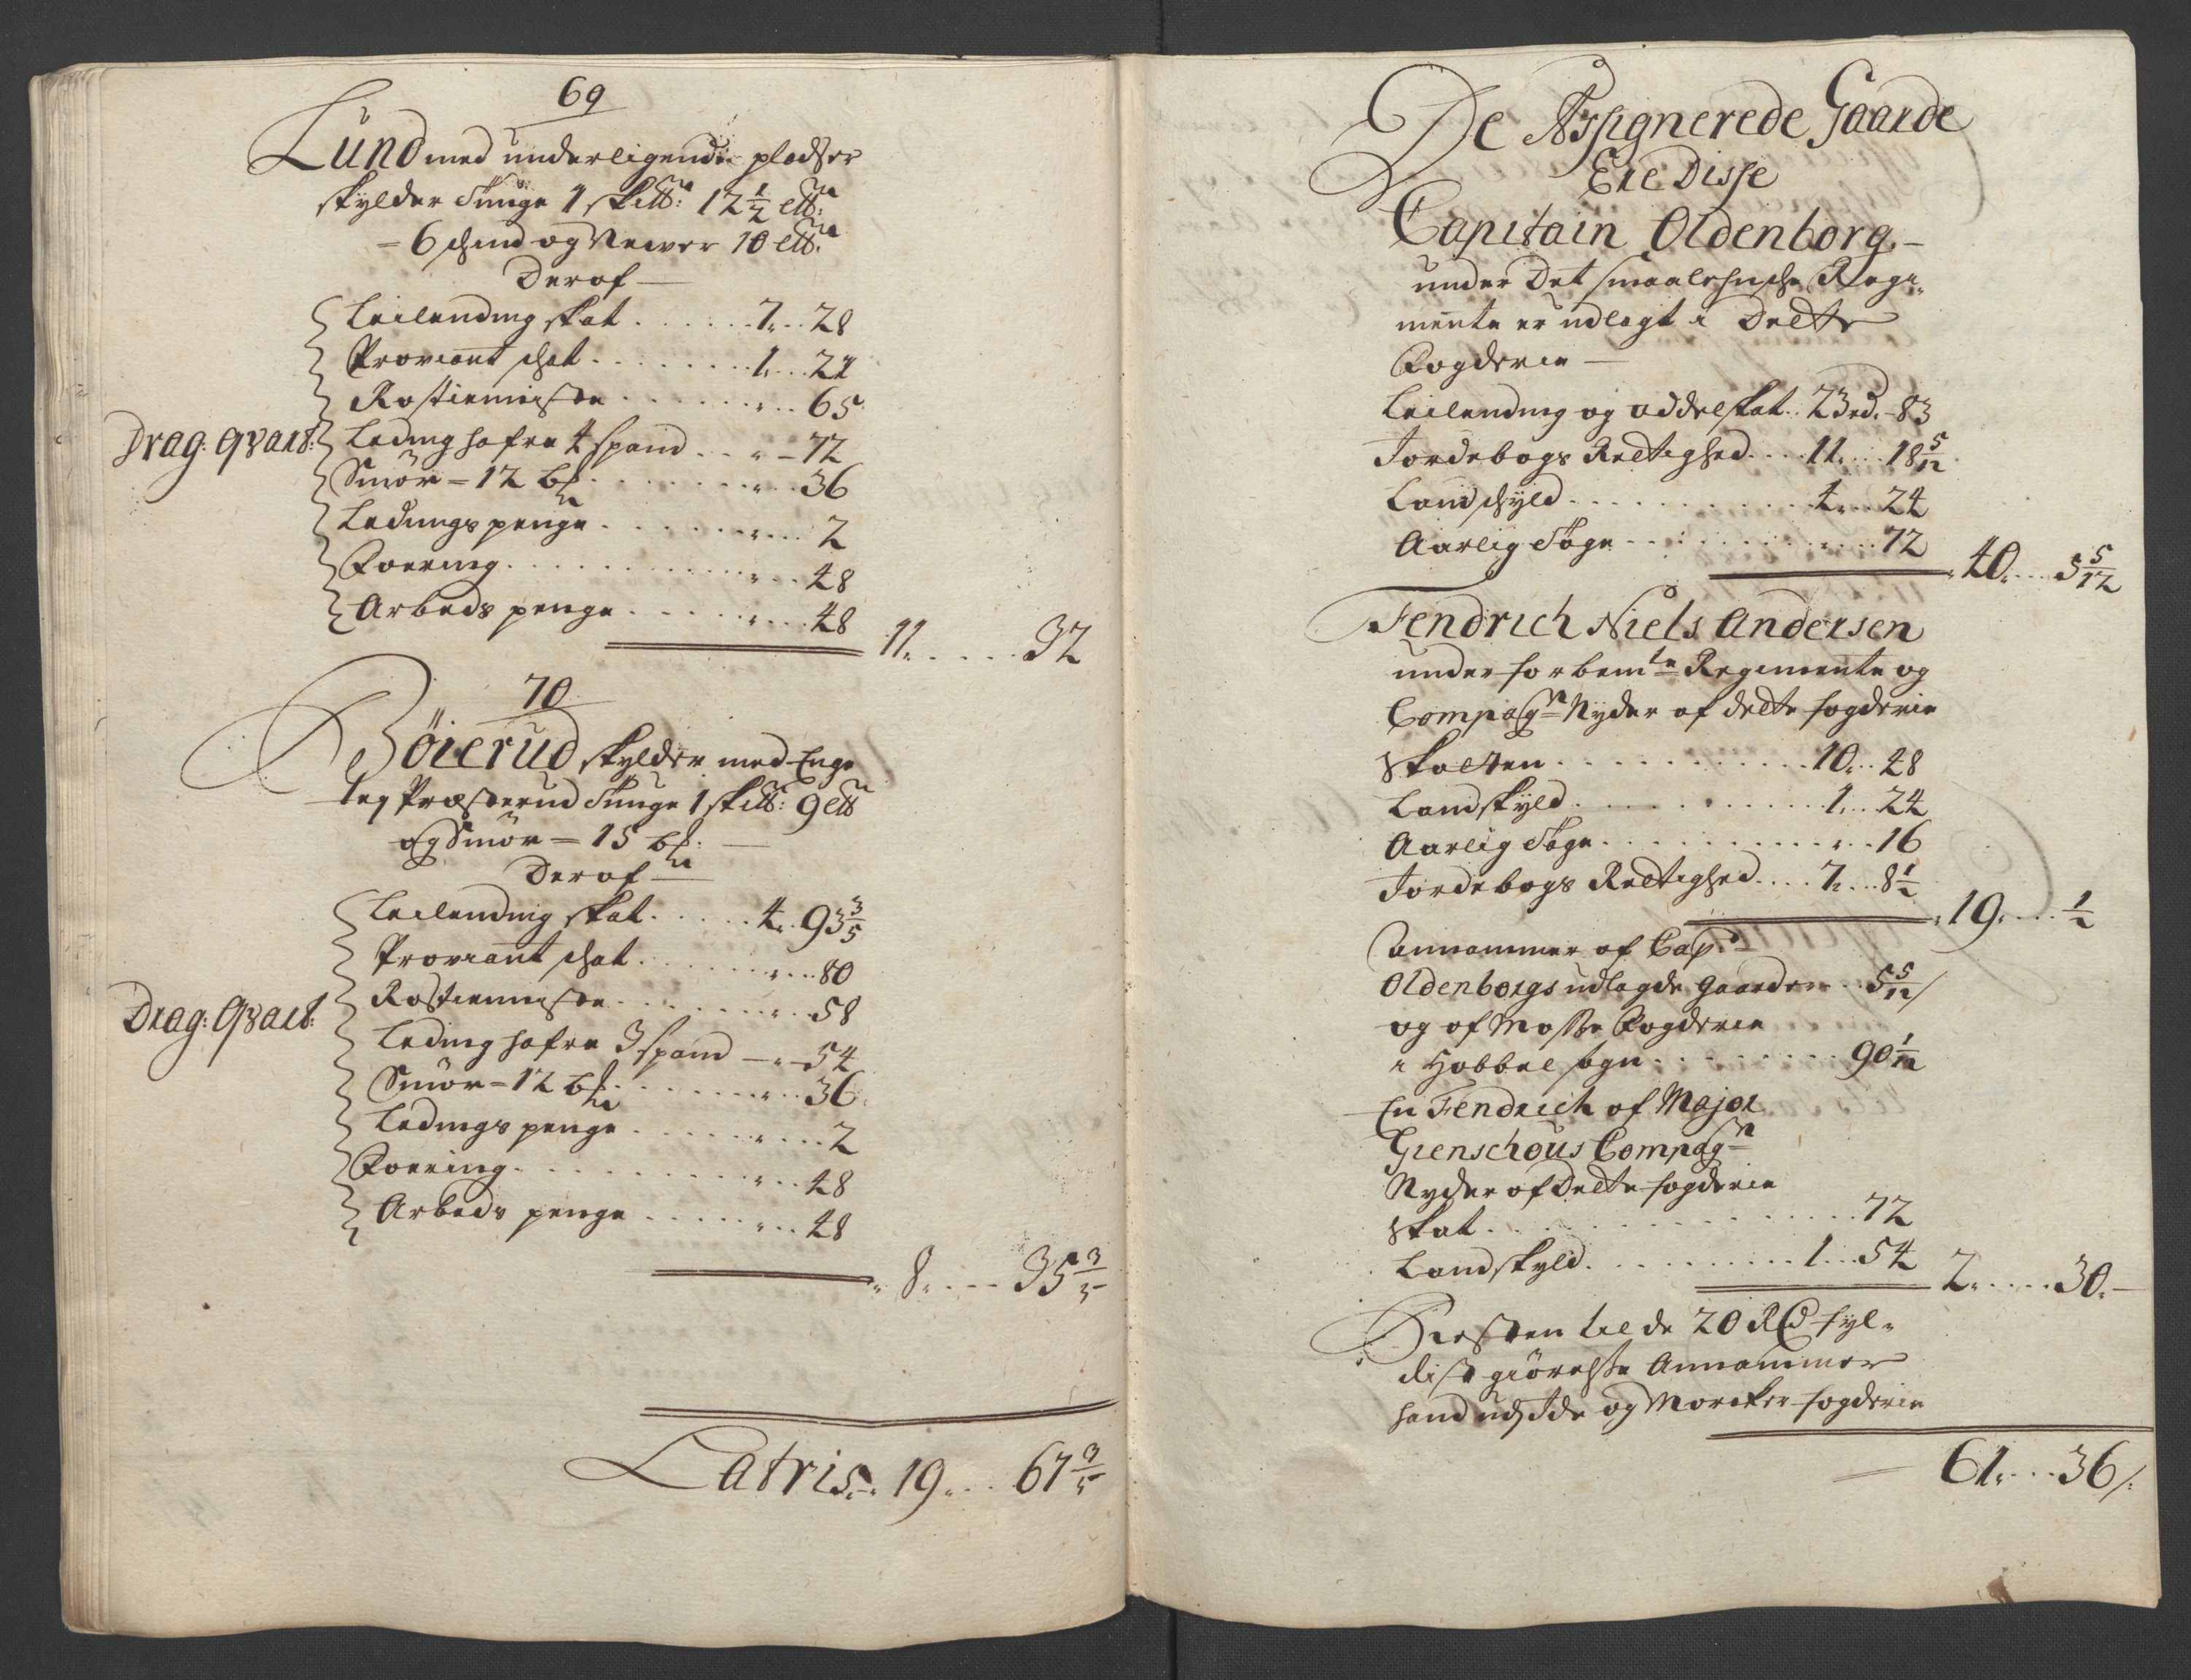 69
Lund med underligende pladser
skylder Tunge 1 skitt: 12 1/2 ett:
= 6 schind og Newer 10 ett:
Deraf —
Leilending skat . . . . . . 7. . . 28
Proviant schat . . . . . . . 1. . . 24
Rostienniste . . . . . . . „ . . 65
Drag: qvart:
Leding hafre 4 spand . . „ – 72
Smör = 12 bs . . . . . . . „ . . 36
Ledungs penge . . . . . . „ . . . 2
Foering . . . . . . . . . . . „ . . . 48
Arbeds penge . . . . . . „ . . . 48
11. . . . . . 32
70
Böierud skylder med Enge
teg Præsterud Tunge 1 skitt: 9 ett
og Smör = 15 bs: —
Deraf —
Leilending skat . . . . . 4. . 93 3/5
Proviant schat . . . . . . . „ . . . 80
Rostienniste . . . . . . . . „ . . 58
Drag: Qvart:
Leding hafre 3 spand — „ – 54
Smör = 12 bs . . . . . . . „ . . 36
Ledings penge . . . . . . „ . . . 2
Foering . . . . . . . . . . „ . . 48
Arbeds penge . . . . . „ . . 48
„ 8. . . . 35 3/5
Latris. . 19. . . 67 3/5
De Assignerede Gaarde
Ere Disse
Capitain Oldenborg –
under Det smaalehnsche Regi„
mente er udlagt i Dette
Fogderie —
Leilending og oddelskat . . 23 rd. – 83
Jordebogs Rettighed . . . . 11. . . . 18 5/12
Landschyld . . . . . . . . . . . . 4. . . 24
Aarlig Tage . . . . . . . . . . . . 72
„ 40. . . . 5 5/12
Fendrich Niels Andersen
under forbemte Regimente og
Compagn Nyder af dette fogderie
Skatten . . . . . . . . . . . . 10. . . 48
Landskyld . . . . . . . . . . . 1. . . 24
Aarlig Tage . . . . . . . . . . „ . . 16
Jordebogs Rettighed . . . . 7. . . 8 1/12
„ 19. . . . 1/2
annammer af Cap:
Oldenborgs udlagde gaarder . . 5 5/12 /
og af Mosse Fogderie
i Hobbel sogn . . . . . . . . . 90 1/12
En Fendrich af Major
Grenschous Compagn
Nyder af Dette fogderie
Skat . . . . . . . . . . . . . . . . . 72
Landskyld . . . . . . . . . . . 1. . . 54
2. . . . . 30. —
Resten til de 20 Rd fyl„
dist giörelse Annammer
hand udj Ide og Marcker fogderie
61. . . . 36 /: